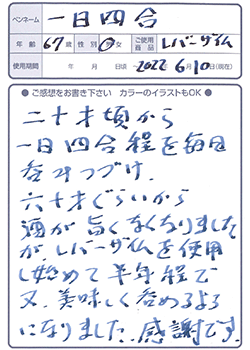 ペンネーム 一日四合
年齢 67歳 性別 男女 ご使用商品 レバーザイム
使用期間 年 月 日頃 ~2022 6月10日(現在)
● ご感想をお書き下さい カラーのイラストもOK ●
二十才頃から
一日四合程を毎日
呑みつづけ、
六十才ぐらいから
酒が旨くなくなりました
が、レバーザイムを使用
し始めて半年程で
又、美味しく呑めるよう
になりました。感謝です。